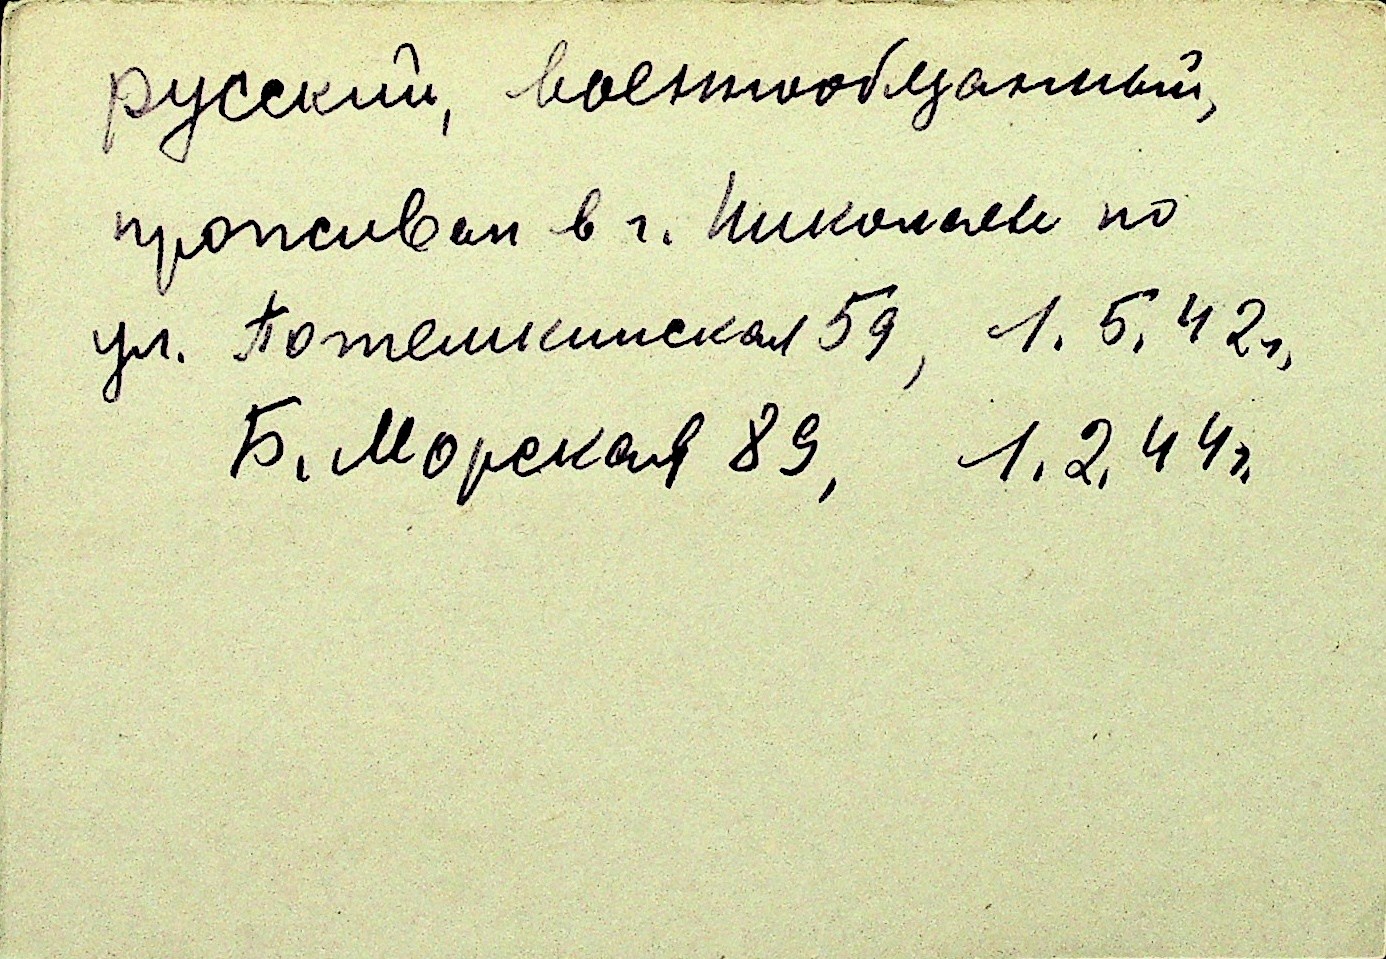 русский, военнообязанный,
проживал в г. Николаеве по
ул. Потемкинская 59, 1.5.42г,
Б. Морская 89, 1.2.44г.